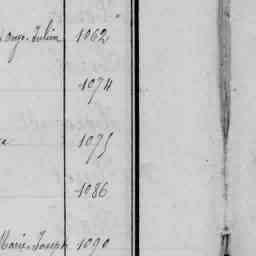 Julien 1062
1074
1075
1086
Marie-Joseph 1090